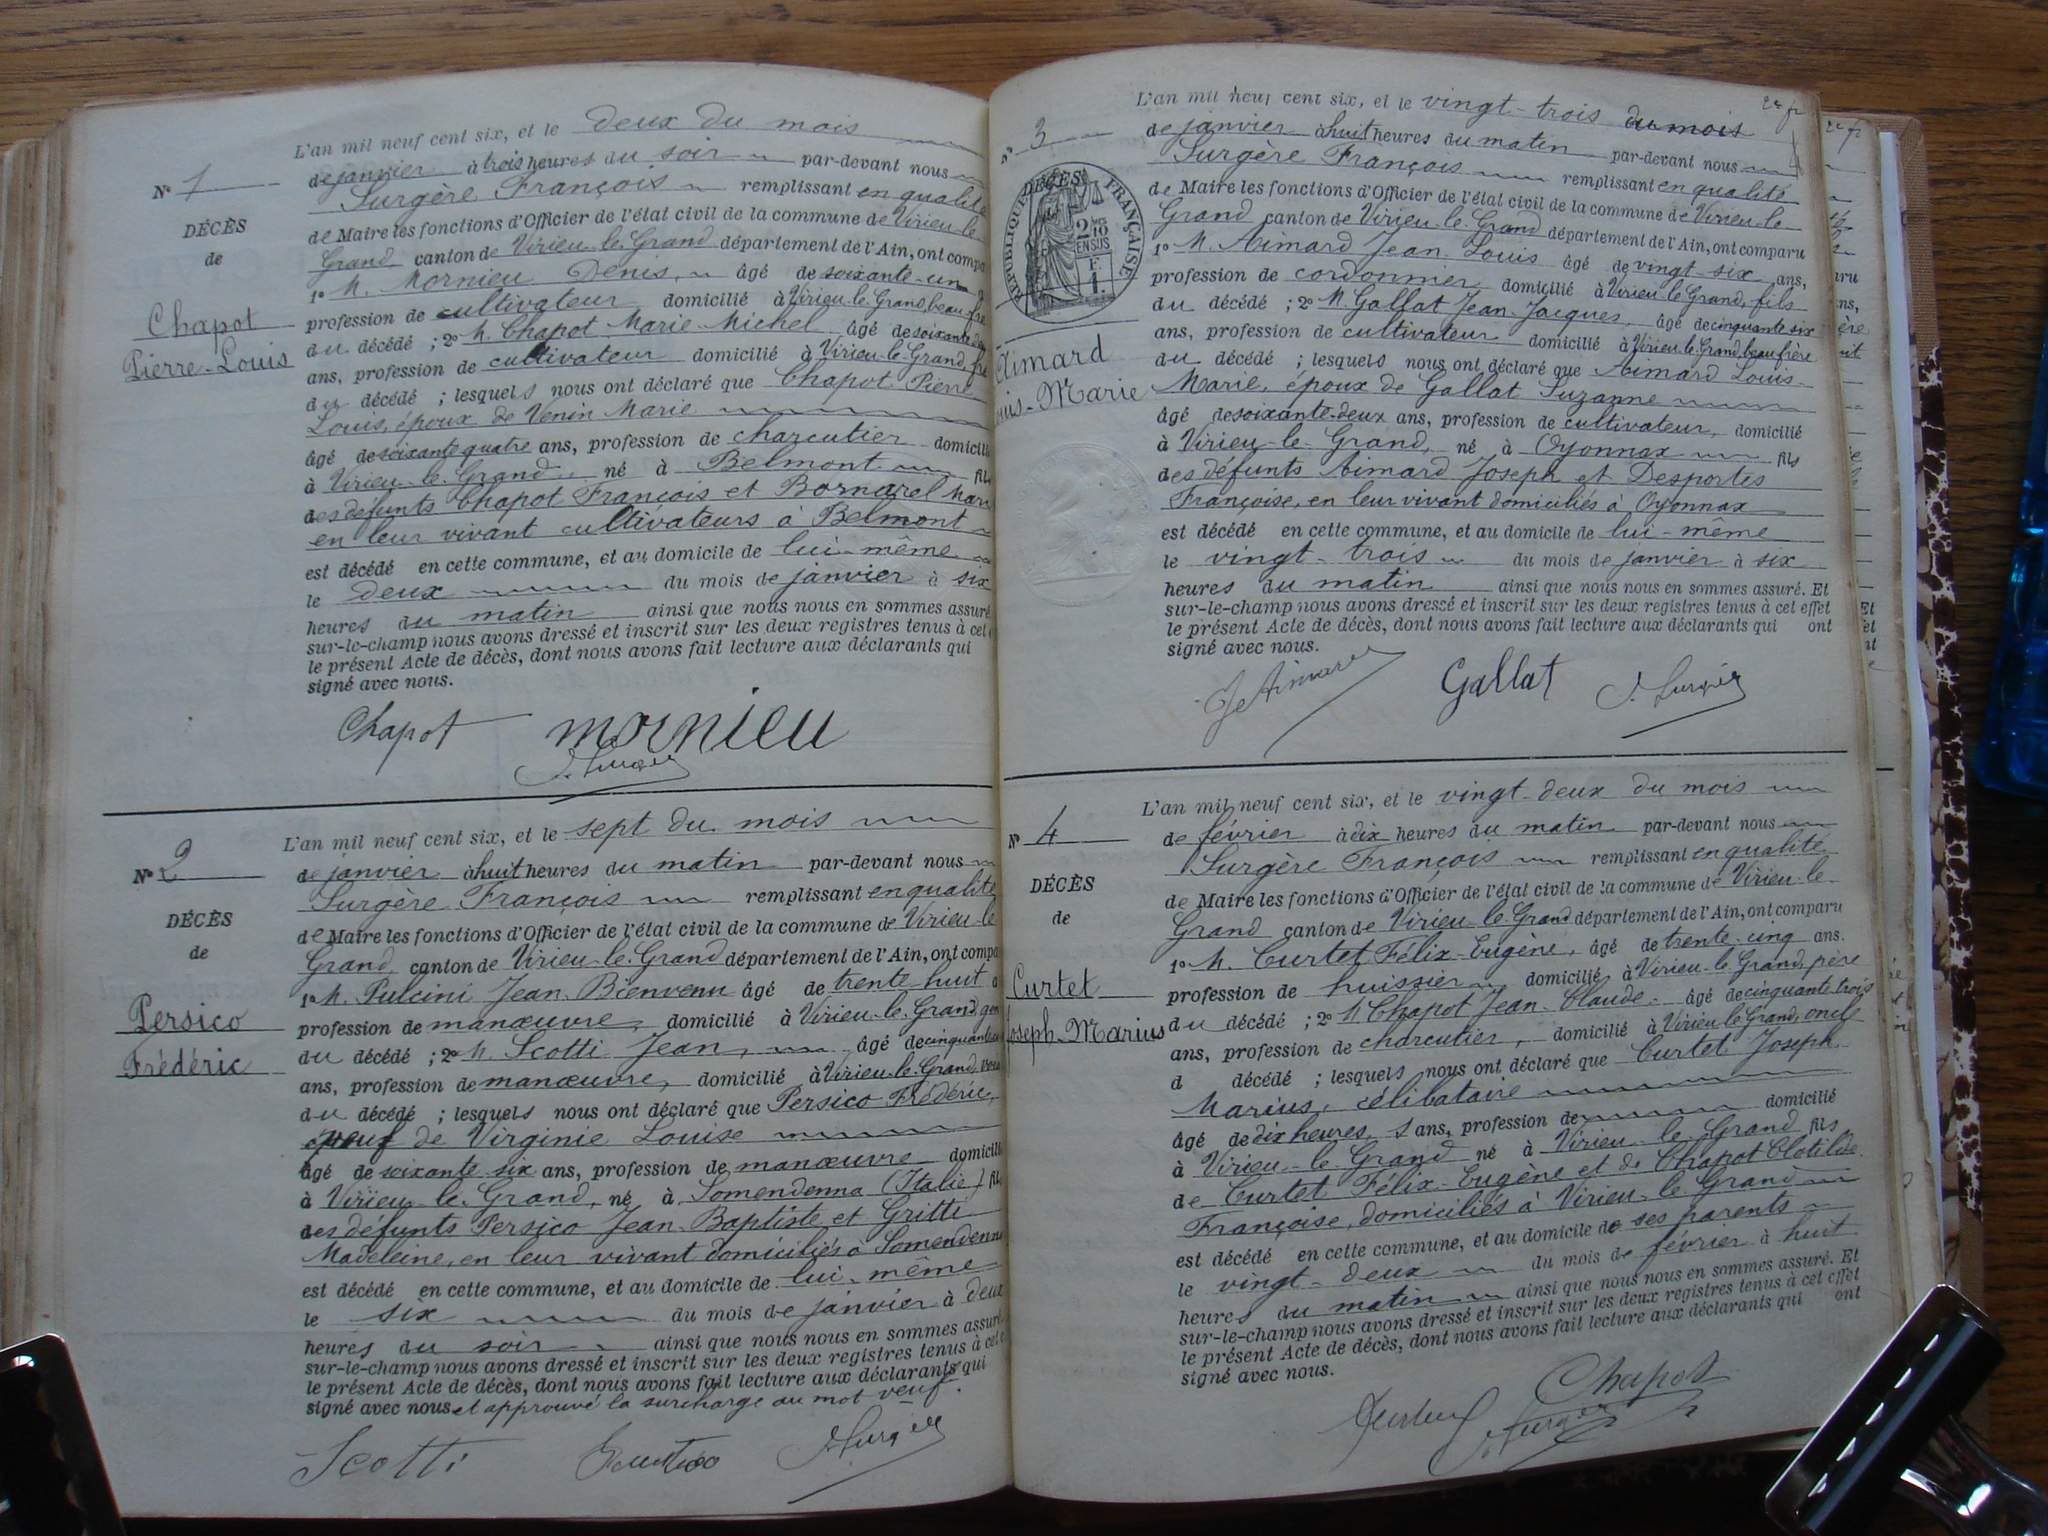 N° 1
DÉCÈS
de
Chapot
Pierre-Louis
L'an mil neuf cent six, et le deux du mois
de janvier à trois heures du soir par-devant nous
Surgère François remplissant en qualité
de Maire les fonctions d'Officier de l'état civil de la commune de Virieu-le-
Grand canton de Virieu-le-Grand département de l'Ain, ont compa
1° M. Mornieu Denis, âgé de soixante-un
profession de cultivateur domicilié à Virieu-le-Grand, beau-frè
du décédé ; 2° M. Chapot Marie-Michel âgé de soixante
ans, profession de cultivateur domicilié à Virieu-le-Grand, frè
du décédé ; lesquels nous ont déclaré que Chapot Pierre
Louis, époux de Venin Marie
âgé de soixante quatre ans, profession de charcutier domicili
à Virieu-le-Grand, né à Belmont fils
des défunts Chapot François et Bornarel Mari
en leur vivant cultivateurs à Belmont
est décédé en cette commune, et au domicile de lui-même
le deux du mois de janvier à six
heures du matin ainsi que nous nous en sommes assuré
sur-le-champ nous avons dressé et inscrit sur les deux registres tenus à cet
le présent Acte de décès, dont nous avons fait lecture aux déclarants qui
signé avec nous.
Chapot mornieu
F. Surgère
N° 2
DÉCÈS
de
Persico
Frédéric
L'an mil neuf cent six, et le sept du mois
de janvier à huit heures du matin par-devant nous
Surgère François remplissant en qualité
de Maire les fonctions d'Officier de l'état civil de la commune de Virieu-le
Grand canton de Virieu-le-Grand département de l'Ain, ont compa
1° M. Pulcini Jean-Bienvenu âgé de trente huit a
profession de manœuvre, domicilié à Virieu-le-Grand, gen
du décédé ; 2° M. Scotti Jean, âgé de cinquante
ans, profession de manœuvre, domicilié à Virieu-le-Grand, vois
du décédé ; lesquels nous ont déclaré que Persico Frédéric,
veuf de Virginie Louise
âgé de soixante-six ans, profession de manœuvre domicilié
à Virieu-le-Grand, né à Somendenna (Italie) fils
des défunts Persico Jean-Baptiste et Gritti
Madeleine, en leur vivant domiciliés à Somendenna
est décédé en cette commune, et au domicile de lui-même
le six du mois de janvier à deux
heures du soir ainsi que nous nous en sommes assuré
sur-le-champ nous avons dressé et inscrit sur les deux registres tenus à cet e
le présent Acte de décès, dont nous avons fait lecture aux déclarants qui
signé avec nous et approuvé la surcharge au mot veuf.
Scotti F. Surgère
N° 3
DÉCÈS
RÉPUBLIQUE FRANÇAISE
Aimard
uis-Marie
L'an mil neuf cent six, et le vingt-trois du mois
de janvier à huit heures du matin par-devant nous
Surgère François remplissant en qualité
de Maire les fonctions d'Officier de l'état civil de la commune de Virieu-le-
Grand canton de Virieu-le-Grand département de l'Ain, ont comparu
1° M. Aimard Jean-Louis âgé de vingt-six ans,
profession de cordonnier domicilié à Virieu-le-Grand, fils
du décédé ; 2° M. Gallat Jean-Jacques, âgé de cinquante six
ans, profession de cultivateur domicilié à Virieu-le-Grand, beau frère
du décédé ; lesquels nous ont déclaré que Aimard Louis-
Marie, époux de Gallat Suzanne
âgé de soixante-deux ans, profession de cultivateur, domicilié
à Virieu-le-Grand, né à Oyonnax fils
des défunts Aimard Joseph et Desportes
Françoise, en leur vivant domiciliés à Oyonnax
est décédé en cette commune, et au domicile de lui-même
le vingt-trois du mois de janvier à six
heures du matin ainsi que nous nous en sommes assuré. Et
sur-le-champ nous avons dressé et inscrit sur les deux registres tenus à cet effet
le présent Acte de décès, dont nous avons fait lecture aux déclarants qui ont
signé avec nous.
Aimard Gallat F. Surgère
N° 4
DÉCÈS
de
Curtet
Joseph-Marius
L'an mil neuf cent six, et le vingt-deux du mois
de février à dix heures du matin par-devant nous
Surgère François remplissant en qualité
de Maire les fonctions d'Officier de l'état civil de la commune de Virieu-le-
Grand canton de Virieu-le-Grand département de l'Ain, ont comparu
1° M. Curtet Félix-Eugène, âgé de trente-cinq ans.
profession de huissier, domicilié à Virieu-le-Grand, père
du décédé ; 2° M. Chapot Jean-Claude âgé de cinquante trois
ans, profession de charcutier, domicilié à Virieu-le-Grand, oncle
d décédé ; lesquels nous ont déclaré que Curtet Joseph-
Marius, célibataire
âgé de dix heures, ans, profession de domicilié
à Virieu-le-Grand né à Virieu-le-Grand fils
de Curtet Félix-Eugène et de Chapot Clotilde
Françoise, domiciliés à Virieu-le-Grand
est décédé en cette commune, et au domicile de ses parents
le vingt-deux du mois de février à huit
heures du matin ainsi que nous nous en sommes assuré. Et
sur-le-champ nous avons dressé et inscrit sur les deux registres tenus à cet effet
le présent Acte de décès, dont nous avons fait lecture aux déclarants qui ont
signé avec nous.
Chapot
F. Surgère